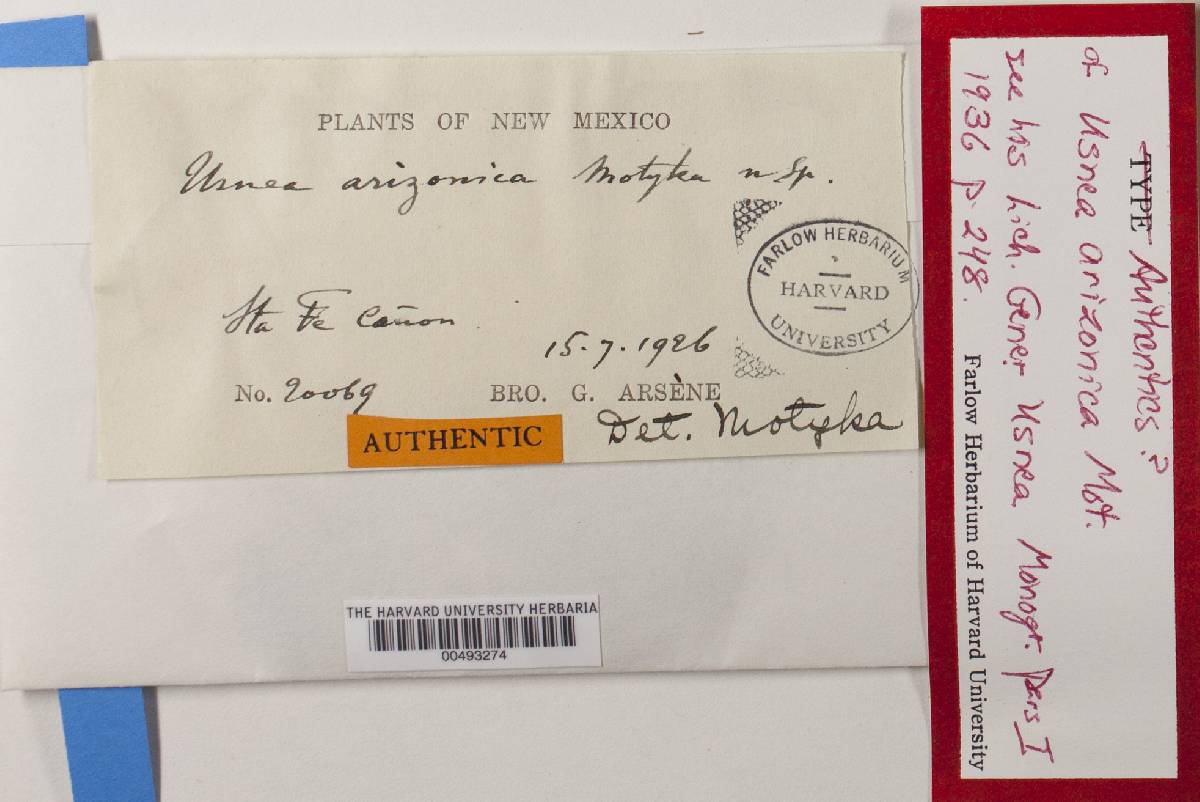 PLANTS OF NEW MEXICO
Usnea arizonica Motyka n Sp.
FARLOW HERBARIUM
HARVARD
UNIVERSITY
Sta Fe Cañon
15.7.1926
No. 20069 BRO. G. ARSÈNE
AUTHENTIC Det. Motyka
THE HARVARD UNIVERSITY HERBARIA
00493274
TYPE Authentics?
of Usnea arizonica Mot.
see his Lich. Gener Usnea Monogr. Pars I
1936 p. 248.
Farlow Herbarium of Harvard University